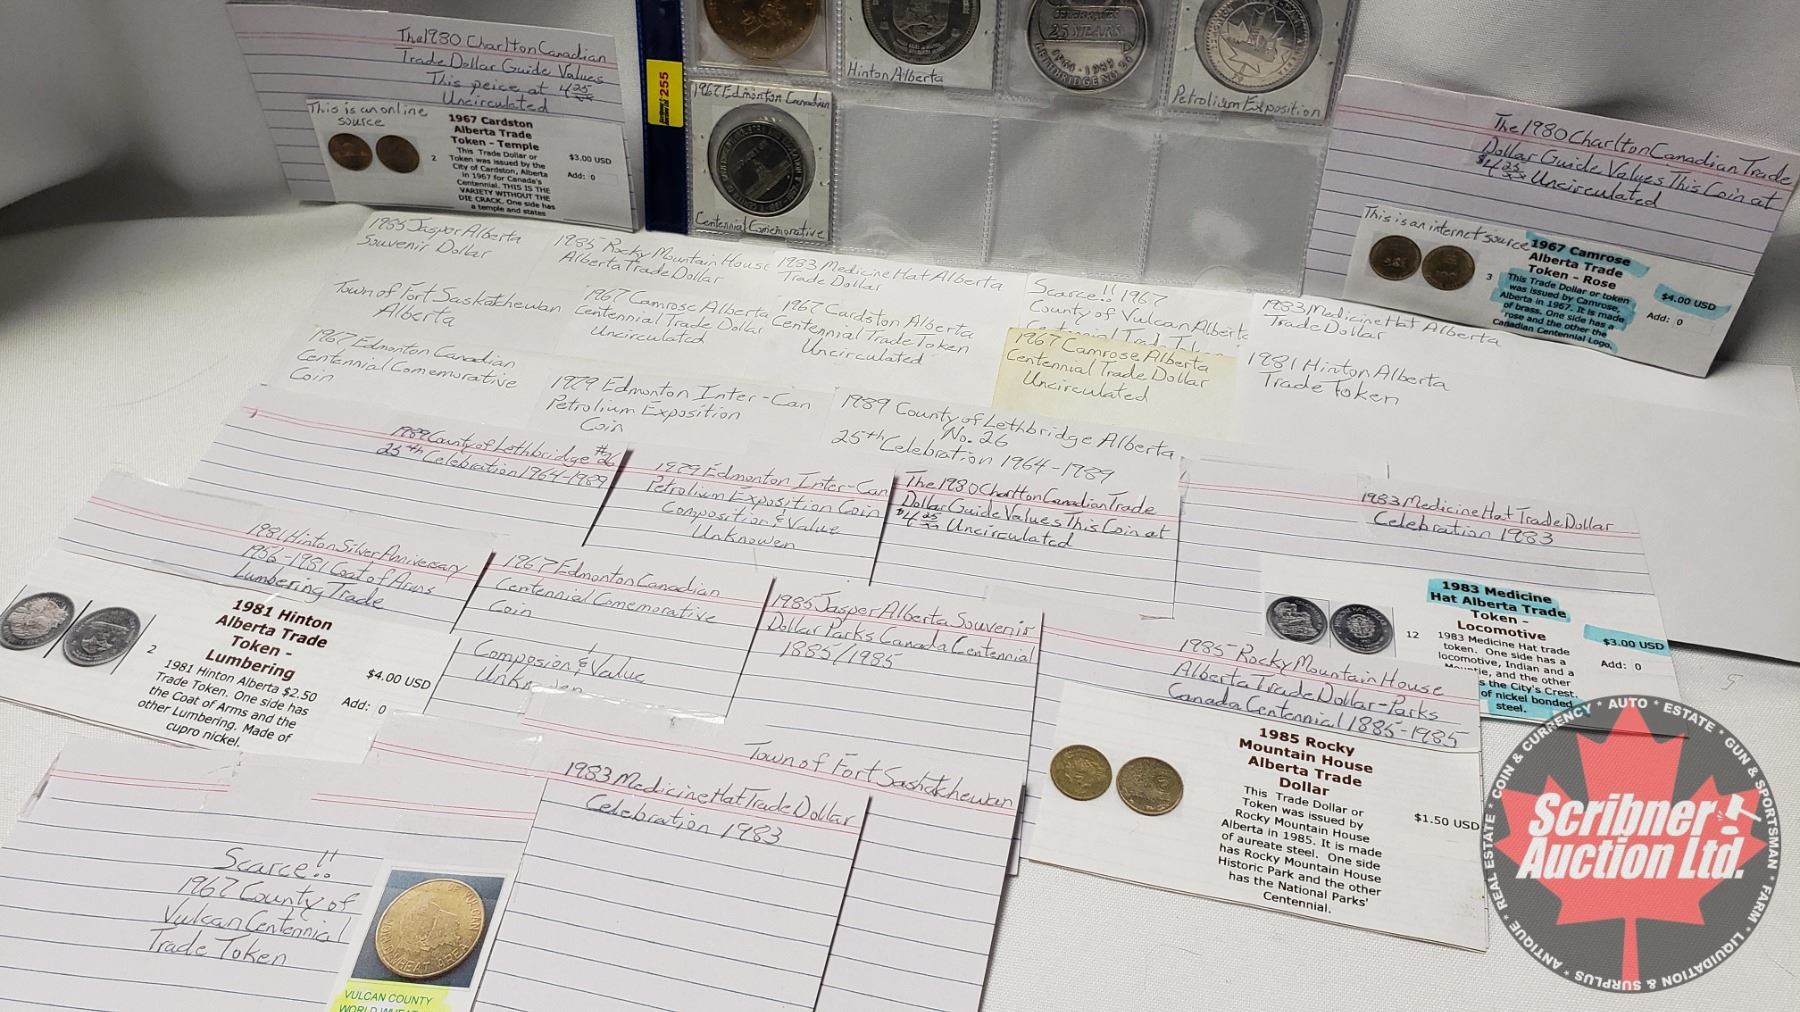 The 1980 Charlton Canadian
Trade Dollar Guide Values
This peice at 4 25/xx
Uncirculated
This is an online
source
1967 Cardston
Alberta Trade
Token - Temple
This Trade Dollar or
Token was issued by the
City of Cardston, Alberta
in 1967 for Canada's
Centennial. THIS IS THE
VARIETY WITHOUT THE
DIE CRACK. One side has
a temple and states
2
$3.00 USD
Add: 0
255
Hinton Alberta
25 YEARS
1964-1989
LETHBRIDGE NO. 26
Petrolium Exposition
1967 Edmonton Canadian
Centennial Comemorative
The 1980 Charlton Canadian Trade
Dollar Guide Values This Coin at
$4 25/xx Uncirculated
This is an internet source
1967 Camrose
Alberta Trade
Token - Rose
This Trade Dollar or token
was issued by Camrose,
Alberta in 1967. It is made
of brass. One side has a
rose and the other the
Canadian Centennial Logo.
3
$4.00 USD
Add: 0
1985 Jasper Alberta
Souvenir Dollar
1985 Rocky Mountain House
Alberta Trade Dollar
1983 Medicine Hat Alberta
Trade Dollar
Scarce!! 1967
County of Vulcan Alberta
Centennial Trade Token
1983 Medicine Hat Alberta
Trade Dollar
Town of Fort Saskatchewan
Alberta
1967 Camrose Alberta
Centennial Trade Dollar
Uncirculated
1967 Cardston Alberta
Centennial Trade Token
Uncirculated
1967 Camrose Alberta
Centennial Trade Dollar
Uncirculated
1981 Hinton Alberta
Trade Token
1967 Edmonton Canadian
Centennial Comemorative
Coin
1979 Edmonton Inter-Can
Petrolium Exposition
Coin
1989 County of Lethbridge Alberta
No. 26
25th Celebration 1964-1989
1989 County of Lethbridge #26
25th Celebration 1964-1989
1979 Edmonton Inter-Can
Petrolium Exposition Coin
Composition & Value
Unknowen
The 1980 Charlton Canadian Trade
Dollar Guide Values This Coin at
$4 25/xx Uncirculated
1983 Medicine Hat Trade Dollar
Celebration 1983
1983 Medicine
Hat Alberta Trade
Token -
Locomotive
1983 Medicine Hat trade
token. One side has a
locomotive, Indian and a
Mountie, and the other
s the City's Crest.
of nickel bonded
steel.
12
$3.00 USD
Add: 0
1981 Hinton Silver Anniversary
1956-1981 Coat of Arms
Lumbering Trade
1981 Hinton
Alberta Trade
Token -
Lumbering
1981 Hinton Alberta $2.50
Trade Token. One side has
the Coat of Arms and the
other Lumbering. Made of
cupro nickel.
2
$4.00 USD
Add: 0
1967 Edmonton Canadian
Centennial Comemorative
Coin
Composion & Value
Unknowen
1985 Jasper Alberta Souvenir
Dollar Parks Canada Centennial
1885/1985
1985-Rocky Mountain House
Alberta Trade Dollar-Parks
Canada Centennial 1885-1985
1985 Rocky
Mountain House
Alberta Trade
Dollar
This Trade Dollar or
Token was issued by
Rocky Mountain House
Alberta in 1985. It is made
of aureate steel. One side
has Rocky Mountain House
Historic Park and the other
has the National Parks'
Centennial.
$1.50 USD
Town of Fort Saskatchewan
1983 Medicine Hat Trade Dollar
Celebration 1983
Scarce!!
1967 County of
Vulcan Centennial
Trade Token
WHEAT AREA
VULCAN COUNTY
WORLD WHEAT
Scribner
Auction Ltd.
REAL ESTATE * COIN & CURRENCY * AUTO * ESTATE * GUN & SPORTSMAN * FARM * LIQUIDATION & SURPLUS * ANTIQUE *